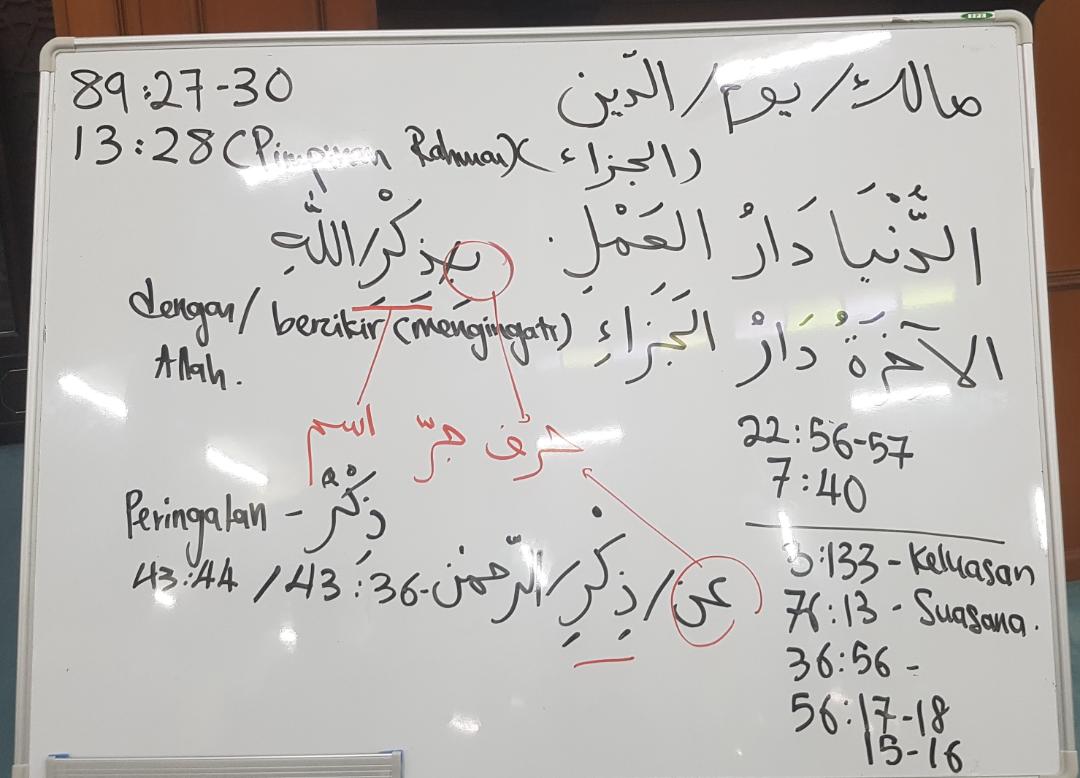 89:27-30
مالك/يوم/الدّين
13:28 (Pimpinan Rahman) (الجزاء)
الدُّنْيَا دَارُ العَمْلِ.
بِذِكْرِ/اللَّهِ
dengan/ berzikir (mengingati)
Allah.
الآخِرَةُ دَارُ الجَزَاءِ
اسم حرف جرّ
22:56-57
7:40
Peringatan - ذِكْرٌ
عن/ذِكرِ/الرّحمن-43:36 / 43:44
3:133 - Keluasan
76:13 - Suasana.
36:56 -
56:17-18
15-16